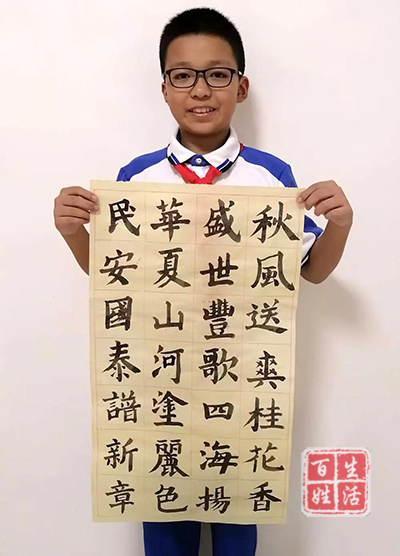 秋風送爽桂花香
盛世豐歌四海揚
華夏山河塗麗色
民安國泰譜新章
百姓
生活